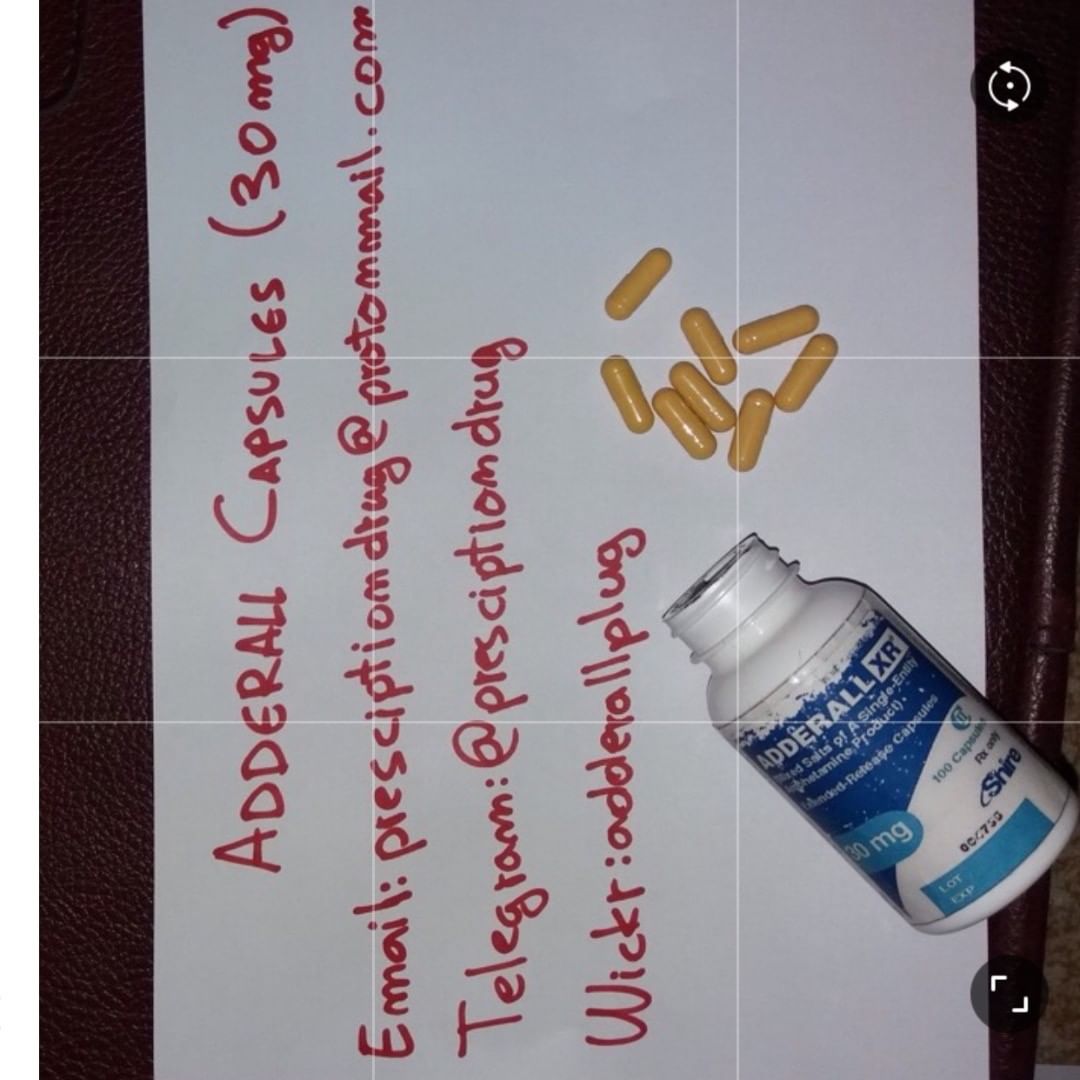 ADDERALL CAPSULES (30mg)
Email: presciptiondrug@protonmail.com
Telegram:@presciptiondrug
Wickr:adderallplug
ADDERALL XR
Salts of A Single-Entity
Product)
Release Capsules
30 mg
100 Capsules
Rx only
Shire
LOT
EXP